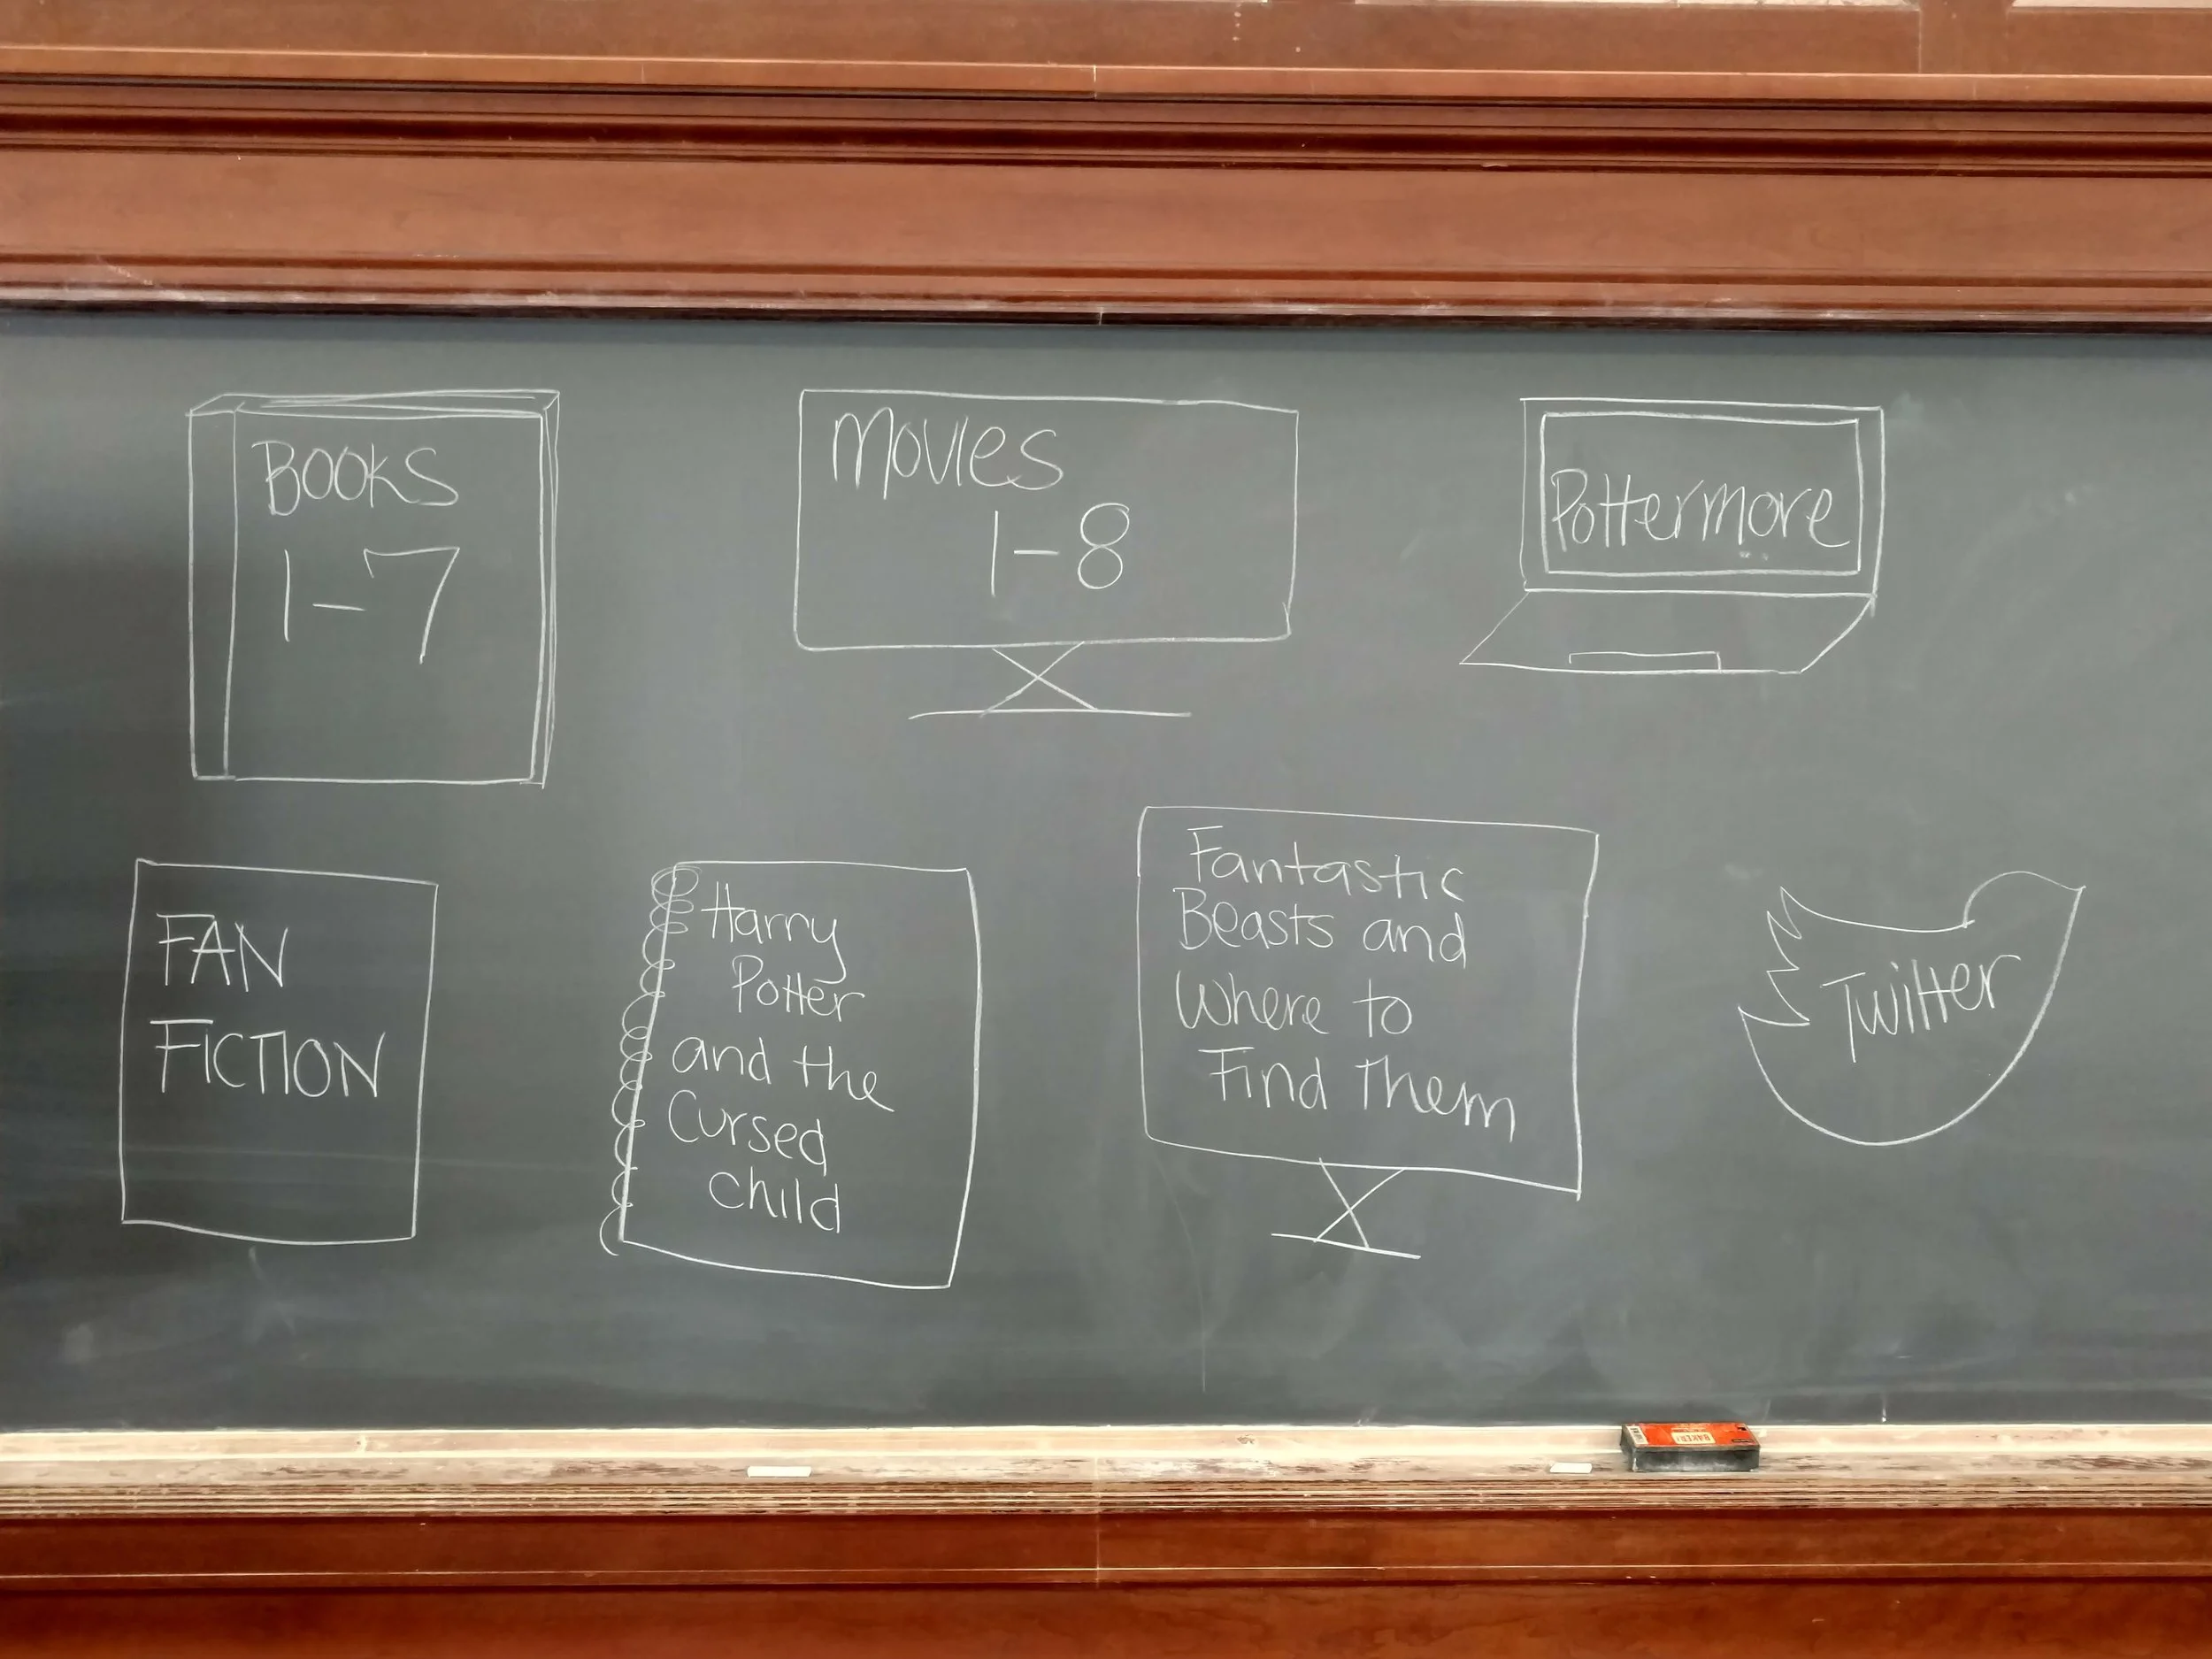 BOOKS
1-7
Movies
1-8
Pottermore
FAN
FICTION
Harry
Potter
and the
Cursed
Child
Fantastic
Beasts and
Where to
Find Them
Twitter